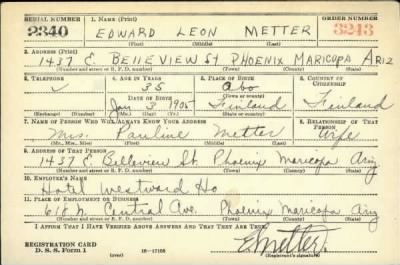 SERIAL NUMBER 1. NAME (Print) ORDER NUMBER
2340 EDWARD LEON METTER 3243
(First) (Middle) (Last)
2. ADDRESS (Print)
1437 E. BELLEVIEW St PHOENIX MARICOPA ARIZ
(Number and street or R. F. D. number) (Town) (County) (State)
3. TELEPHONE 4. AGE IN YEARS 5. PLACE OF BIRTH 6. COUNTRY OF CITIZENSHIP
35 Abo
DATE OF BIRTH (Town or county)
Jan 3 1905 Finland Finland
(Exchange) (Number) (Mo.) (Day) (Yr.) (State or country)
7. NAME OF PERSON WHO WILL ALWAYS KNOW YOUR ADDRESS 8. RELATIONSHIP OF THAT PERSON
Mrs. Pauline Metter Wife
(Mr., Mrs., Miss) (First) (Middle) (Last)
9. ADDRESS OF THAT PERSON
1437 E. Belleview St. Phoenix Maricopa Ariz
(Number and street or R. F. D. number) (Town) (County) (State)
10. EMPLOYER'S NAME
Hotel Westward Ho
11. PLACE OF EMPLOYMENT OR BUSINESS
618 N Central Ave. Phoenix Maricopa Ariz
(Number and street or R. F. D. number) (Town) (County) (State)
I AFFIRM THAT I HAVE VERIFIED ABOVE ANSWERS AND THAT THEY ARE TRUE.
REGISTRATION CARD
D. S. S. Form 1 16-17105 E Metter
(over) (Registrant's signature)